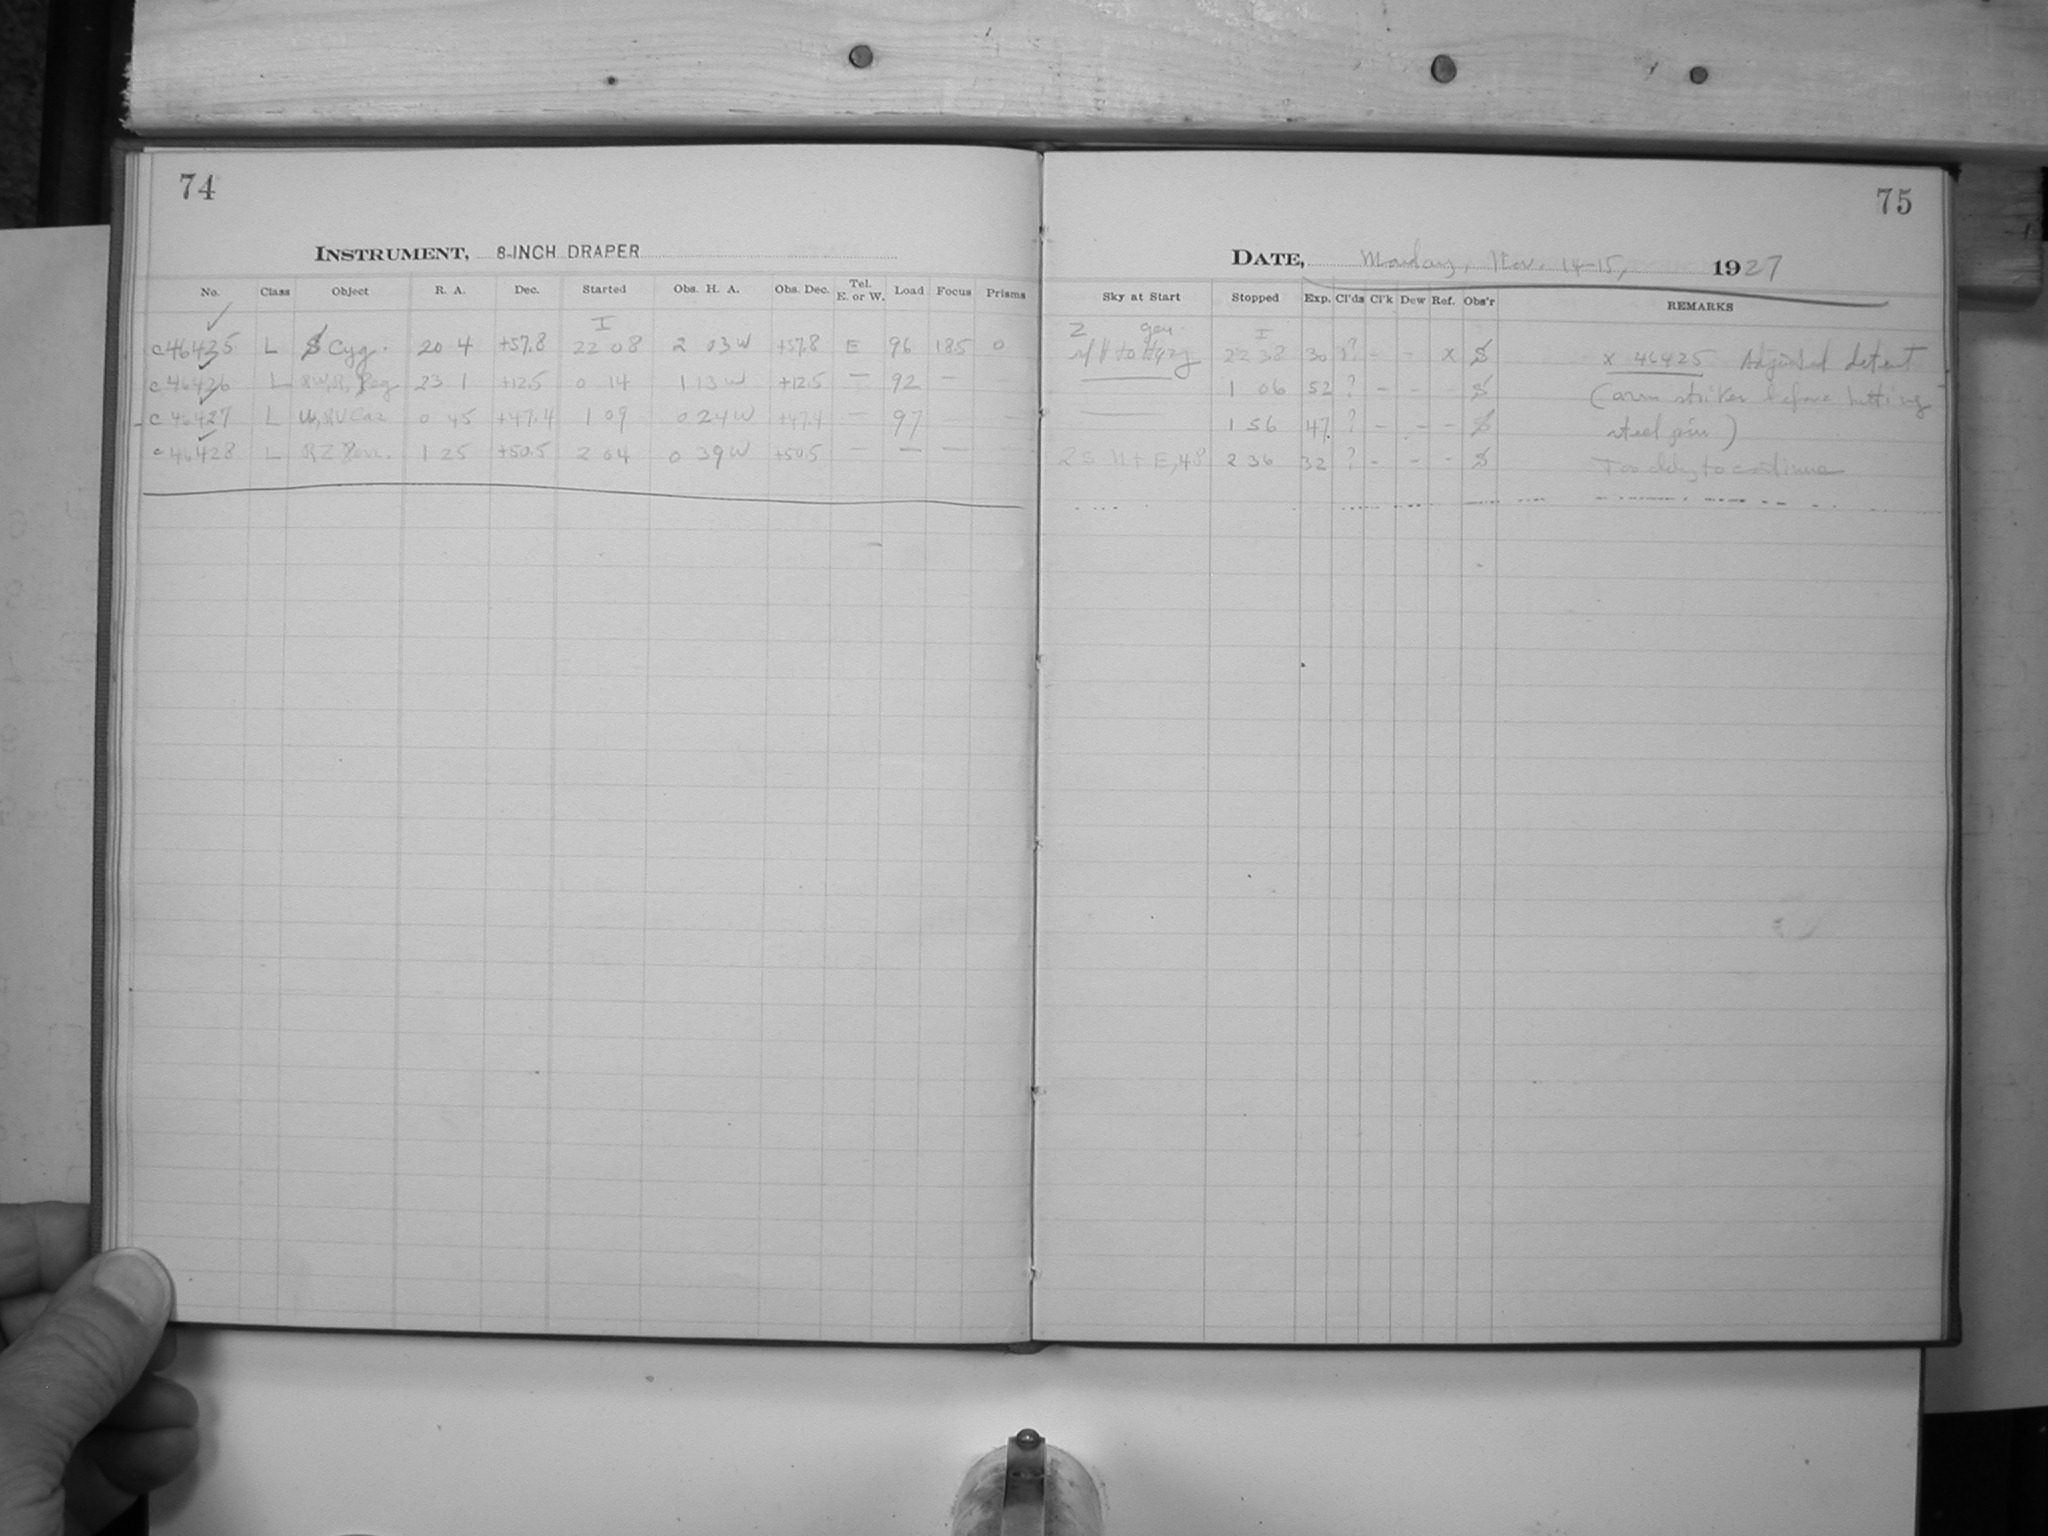 74
INSTRUMENT, 8-INCH DRAPER
No. Class Object R. A. Dec. Started Obs. H. A. Obs. Dec. Tel. E. or W. Load Focus Prisms
I
c46425 L S Cyg. 20 4 +57.8 22 08 2 03W +57.8 E 96 185 0
c46426 L Peg 23 1 +12.5 0 14 1 13W +12.5 — 92 —
c46427 L Cas 0 45 +47.4 1 09 0 24W +47.4 — 97 —
c46428 L RZ 1 25 +50.5 2 04 0 39W +50.5 — — —
75
DATE, Monday, Nov. 14-15, 1927
Sky at Start Stopped Exp. Cl'ds Cl'k Dew Ref. Obs'r REMARKS
2 I
to 22 38 30 ? - - x S x 46425 Adjusted detent
1 06 52 ? - - - S (arm strikes before hitting
1 56 47 ? - - - S steel pin)
N+E, 48 2 36 32 ? - - - S Too cldy to continue